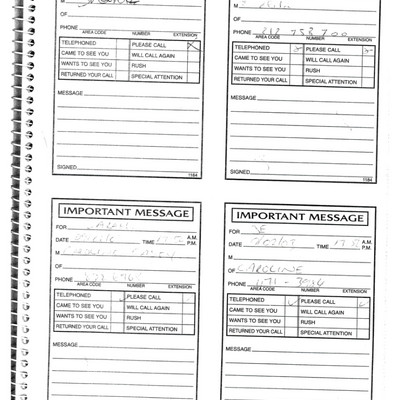 M
OF
PHONE
AREA CODE NUMBER EXTENSION
TELEPHONED PLEASE CALL
CAME TO SEE YOU WILL CALL AGAIN
WANTS TO SEE YOU RUSH
RETURNED YOUR CALL SPECIAL ATTENTION
MESSAGE
SIGNED
1184
M
OF
PHONE
AREA CODE NUMBER EXTENSION
TELEPHONED PLEASE CALL
CAME TO SEE YOU WILL CALL AGAIN
WANTS TO SEE YOU RUSH
RETURNED YOUR CALL SPECIAL ATTENTION
MESSAGE
SIGNED
1184
IMPORTANT MESSAGE
FOR
DATE TIME A.M. P.M.
M
OF
PHONE
AREA CODE NUMBER EXTENSION
TELEPHONED PLEASE CALL
CAME TO SEE YOU WILL CALL AGAIN
WANTS TO SEE YOU RUSH
RETURNED YOUR CALL SPECIAL ATTENTION
MESSAGE
IMPORTANT MESSAGE
FOR JE
DATE TIME A.M. P.M.
M
OF CAROLINE
PHONE
AREA CODE NUMBER EXTENSION
TELEPHONED PLEASE CALL
CAME TO SEE YOU WILL CALL AGAIN
WANTS TO SEE YOU RUSH
RETURNED YOUR CALL SPECIAL ATTENTION
MESSAGE